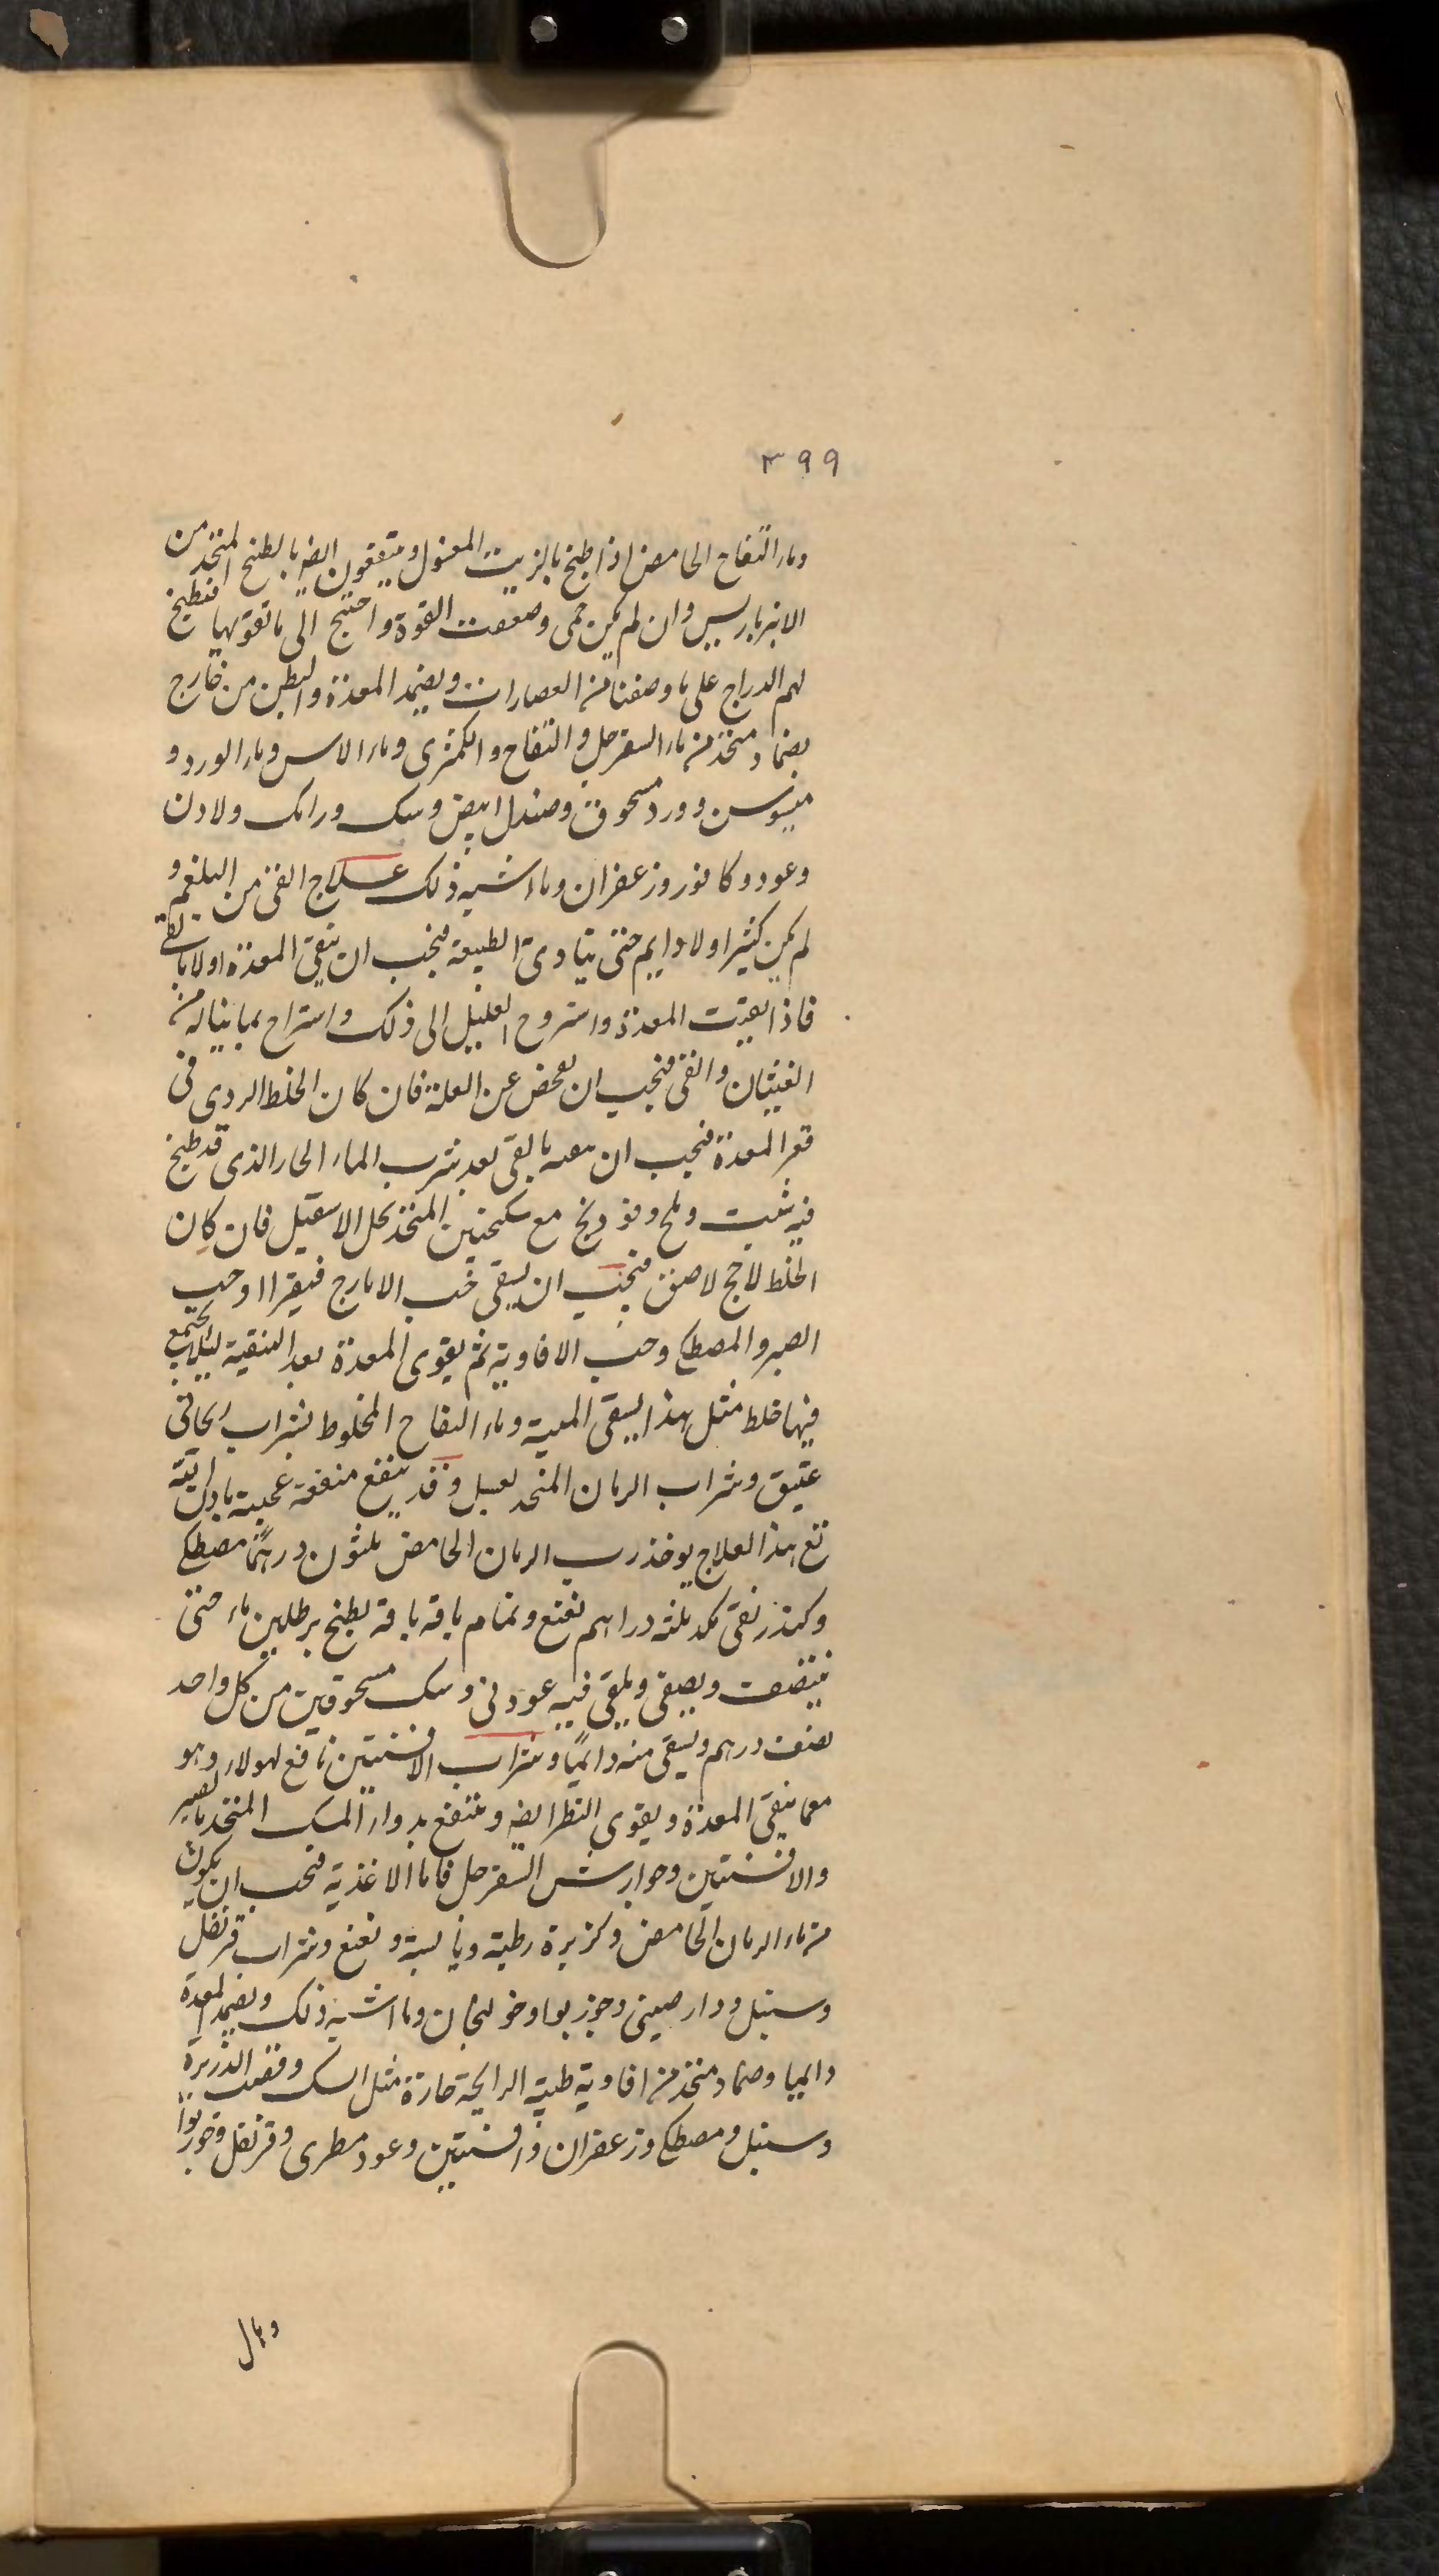 ٣٩٩
وماء التفاح الحامض اذا طبخ بالزيت المغسول وينتفعون ايضا بالطبخ المتخذ من
الانبرباريس وان لم يكن حمى وضعفت القوة واحتيج الى ما تقويها فتطبخ
لهم الدراج على ما وصفنا من العصارات ويضمد المعدة والبطن من خارج
بضماد متخذ من ماء السفرجل والتفاح والكمثرى وماء الاس وماء الورد و
ميسوسن وورد مسحوق وصندل ابيض وسك ورامك ولادن
وعود وكافور وزعفران وما اشبه ذلك علاج القئ من البلغم و
لم يكن كثيرا ولا دايم حتى يتادى الطبيعة فيجب ان ينقى المعدة اولا بالقئ
فاذا نقيت المعدة واستروح العليل الى ذلك واستراح مما يناله من
الغيثان والقئ فيجب ان يفحص عن العلة فان كان الخلط الردى فى
قعر المعدة فيجب ان بالقئ بعد شرب الماء الحار الذى قد طبخ
فيه شبت وملح وفودنج مع سكنجبين المتخذ بخل الاسقيل فان كان
الخلط لاحج لاصق فيجب ان يسقى حب الايارج فيقرا او حب
الصبر والمصطكى وحب الافاوية ثم يقوى المعدة بعد التنقية لئلا يجتمع
فيها خلط مثل هذا ليسقى الميبة وماء التفاح المخلوط بشراب ريحانى
عتيق وشراب الرمان المتخذ بعسل وقد ينفع منفعة عجيبة
هذا العلاج يوخذ رب الرمان الحامض ثلثون درهما مصطكى
وكندر نقى مكد ثلثه دراهم نعنع ونمام باقة باقة يطبخ برطلين ماء حتى
يتنصف ويصفى ويلقى فيه عود نى وسك مسحوقين من كل واحد
نصف درهم ويسقى منه دائما وشراب الافسنتين نافع لهولاء وهو
مما ينقى المعدة ويقوى النظر ايضا وينتفع بدواء المسك المتخذ بالصبر
والافسنتين وجوارش السفرجل فاما الاغذية فيجب ان يكون
من ماء الرمان الحامض وكزبرة رطبة ويابسة ونعنع وشراب قرنفل
وسنبل ودارصينى وجوزبوا وخولنجان وما اشبه ذلك ويضمد المعدة
دايما وضماد متخذ من افاوية طيبة الرايحة حارة مثل السك وقصب الذريرة
وسنبل ومصطكى وزعفران وافسنتين وعود مطرى وقرنفل وجوزبوا